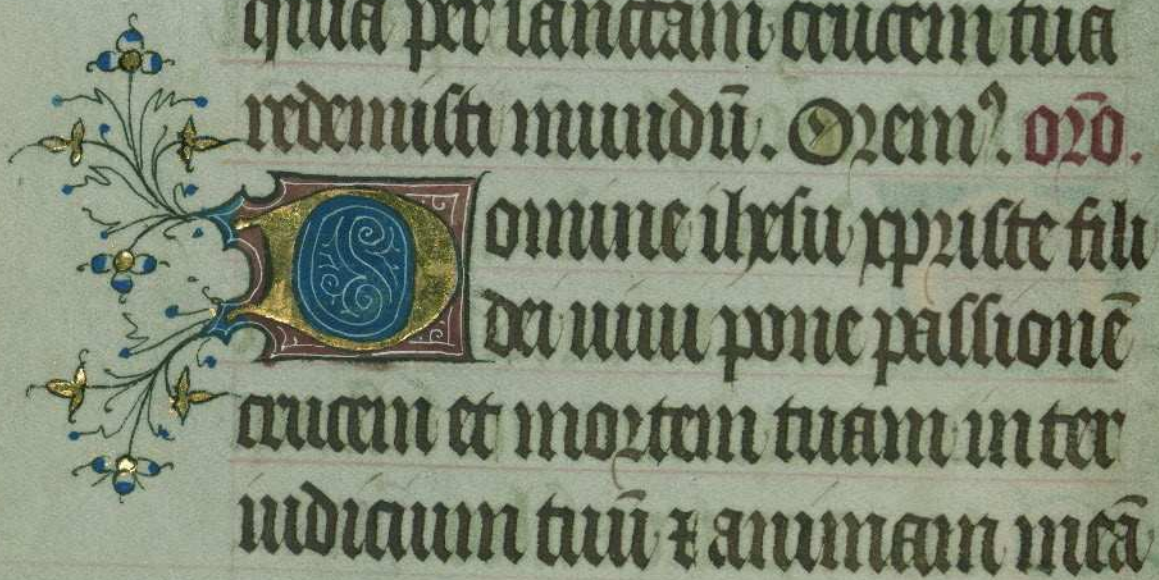 quia per sanctam crucem tua
redemisti mundū. Orem⁹. orō.
Domine ihesu xpriste fili
dei uiui pone passionē
crucem et mortem tuam inter
iudicium tuū ⁊ animam meā